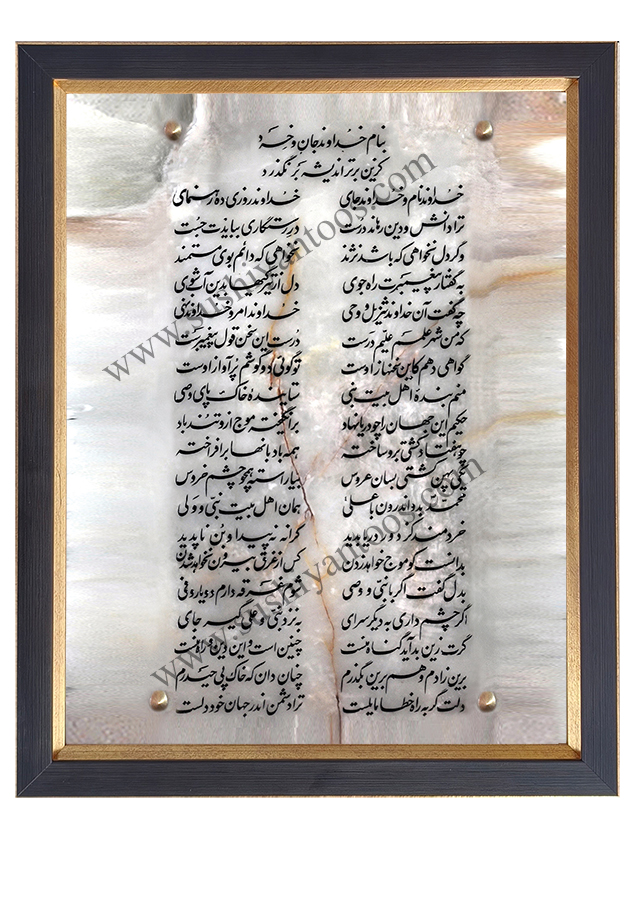 بنام خداوند جان و خرد
کزین برتر اندیشه بر نگذرد
خداوند نام و خداوند جای خداوند روزی ده رهنمای
ترا دانش و دین رهاند درست در رستگاری ببایدت جست
وگر دل نخواهی که باشد نژند نخواهی که دائم بوی مستمند
به گفتار پیغمبرت راه جوی دل از تیرگیها بدین آب شوی
چه گفت آن خداوند تنزیل و وحی خداوند امر و خداوند نهی
که من شهر علمم علیم درست درست این سخن قول پیغمبرست
گواهی دهم کاین سخنها ز اوست تو گوئی دو گوشم پر آواز اوست
منم بندهٔ اهل بیت نبی ستایندهٔ خاک پای وصی
حکیم این جهان را چو دریا نهاد برانگیخته موج از و تند باد
چو هفتاد کشتی برو ساخته همه بادبانها برافراخته
یکی پهن کشتی بسان عروس بیاراسته همچو چشم خروس
محمد بدو اندرون با علی همان اهل بیت نبی و ولی
خردمند کز دور دریا بدید کرانه نه پیدا و بن ناپدید
بدانست کو موج خواهد زدن کس از غرق بیرون نخواهد شدن
بدل گفت اگر با نبی و وصی شوم غرقه دارم دو یار وفی
اگر چشم داری به دیگر سرای به نزد نبی و علی گیر جای
گرت زین بد آید گناه منست چنین است و این دین و راه منست
برین زادم و هم برین بگذرم چنان دان که خاک پی حیدرم
دلت گر به راه خطا مایلست ترا دشمن اندر جهان خود دلست
www.sushiyantoos.com
www.sushiyantoos.com